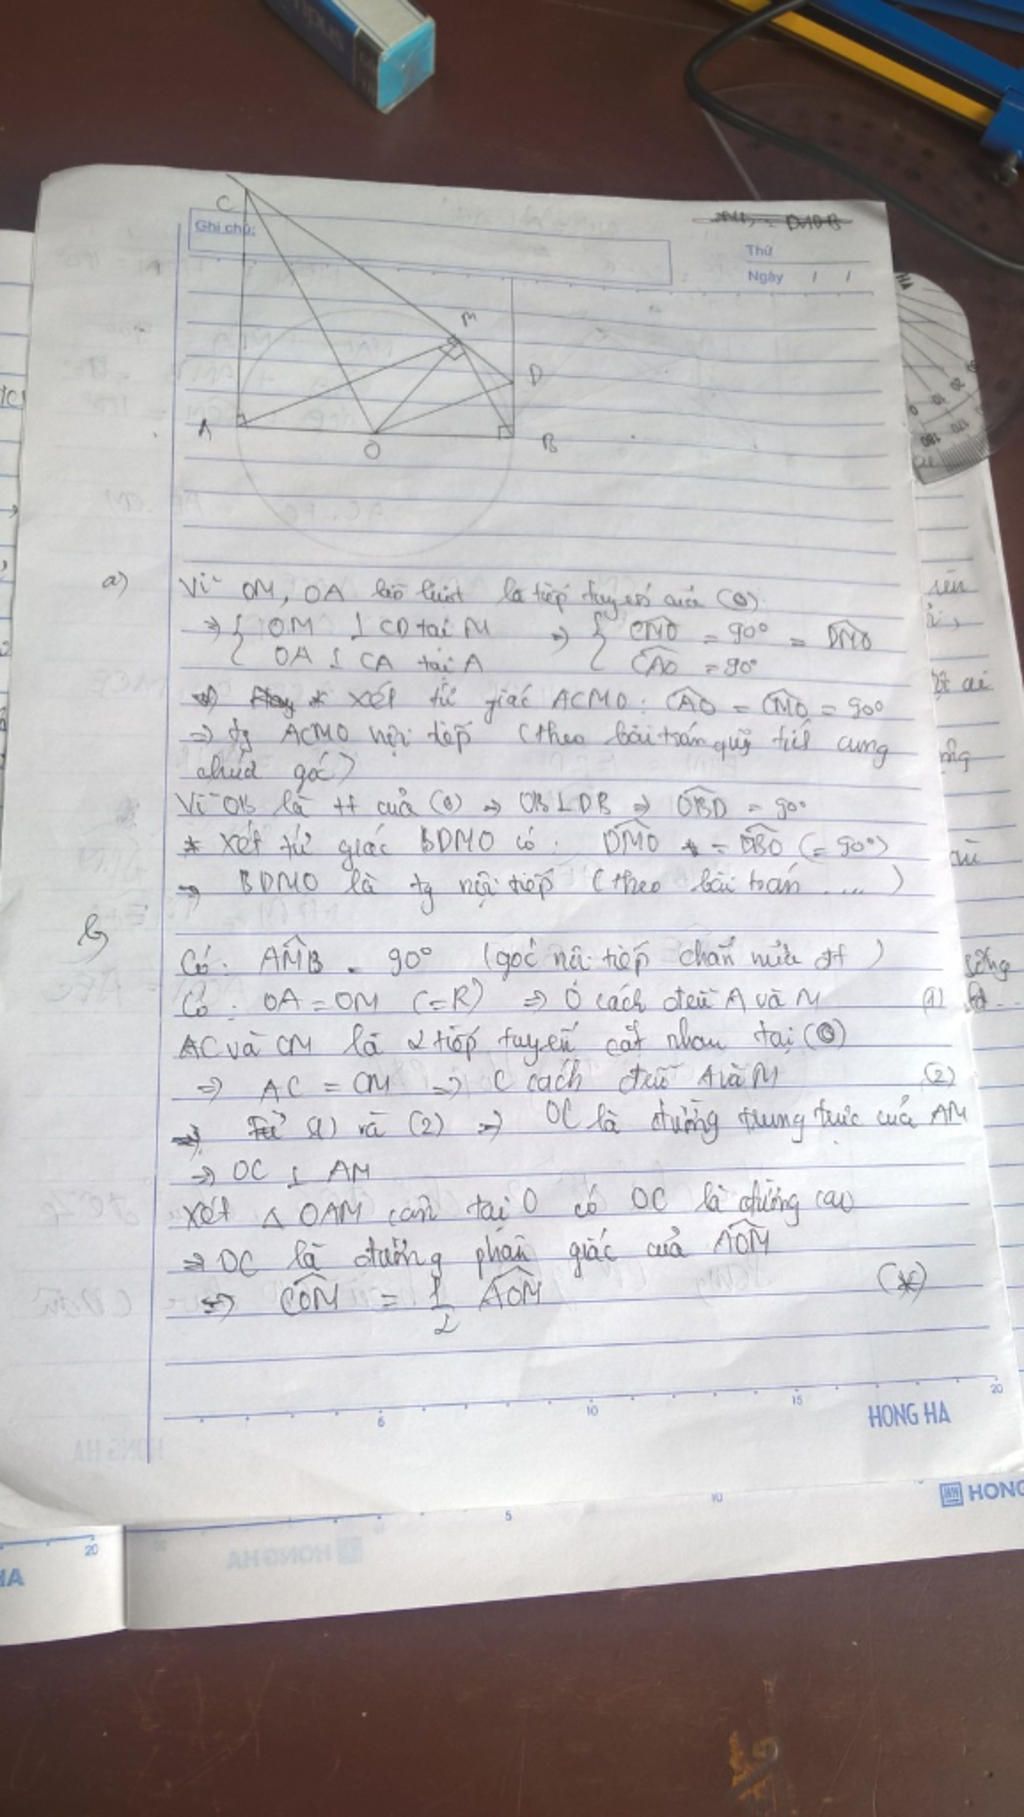 C
Ghi chú:
Thứ
Ngày / /
M
D
A
O
B
a) Vì OM, OA lần lượt là tiếp tuyến của (O)
⇒ { OM ⊥ CD tại M ⇒ { CMO = 90° = DMO
OA ⊥ CA tại A CAO = 90°
* Xét tứ giác ACMO: CAO = CMO = 90°
⇒ tg ACMO nội tiếp (theo bài toán quỹ tích cung
chứa góc)
Vì OB là tt của (O) ⇒ OB ⊥ DB ⇒ OBD = 90°
* Xét tứ giác BDMO có: DMO = DBO (= 90°)
⇒ BDMO là tg nội tiếp (theo bài toán ....)
b, Có: AMB = 90° (góc nội tiếp chắn nửa đt)
Có: OA = OM (=R) ⇒ O cách đều A và M (1)
AC và CM là 2 tiếp tuyến cắt nhau tại (O)
⇒ AC = CM ⇒ C cách đều A và M (2)
Từ (1) và (2) ⇒ OC là đường trung trực của AM
⇒ OC ⊥ AM
Xét Δ OAM cân tại O có OC là đường cao
⇒ OC là đường phân giác của AOM
⇒ COM = 1/2 AOM (*)
5 10 15 20
HONG HA
5 10
HONG
20
HA